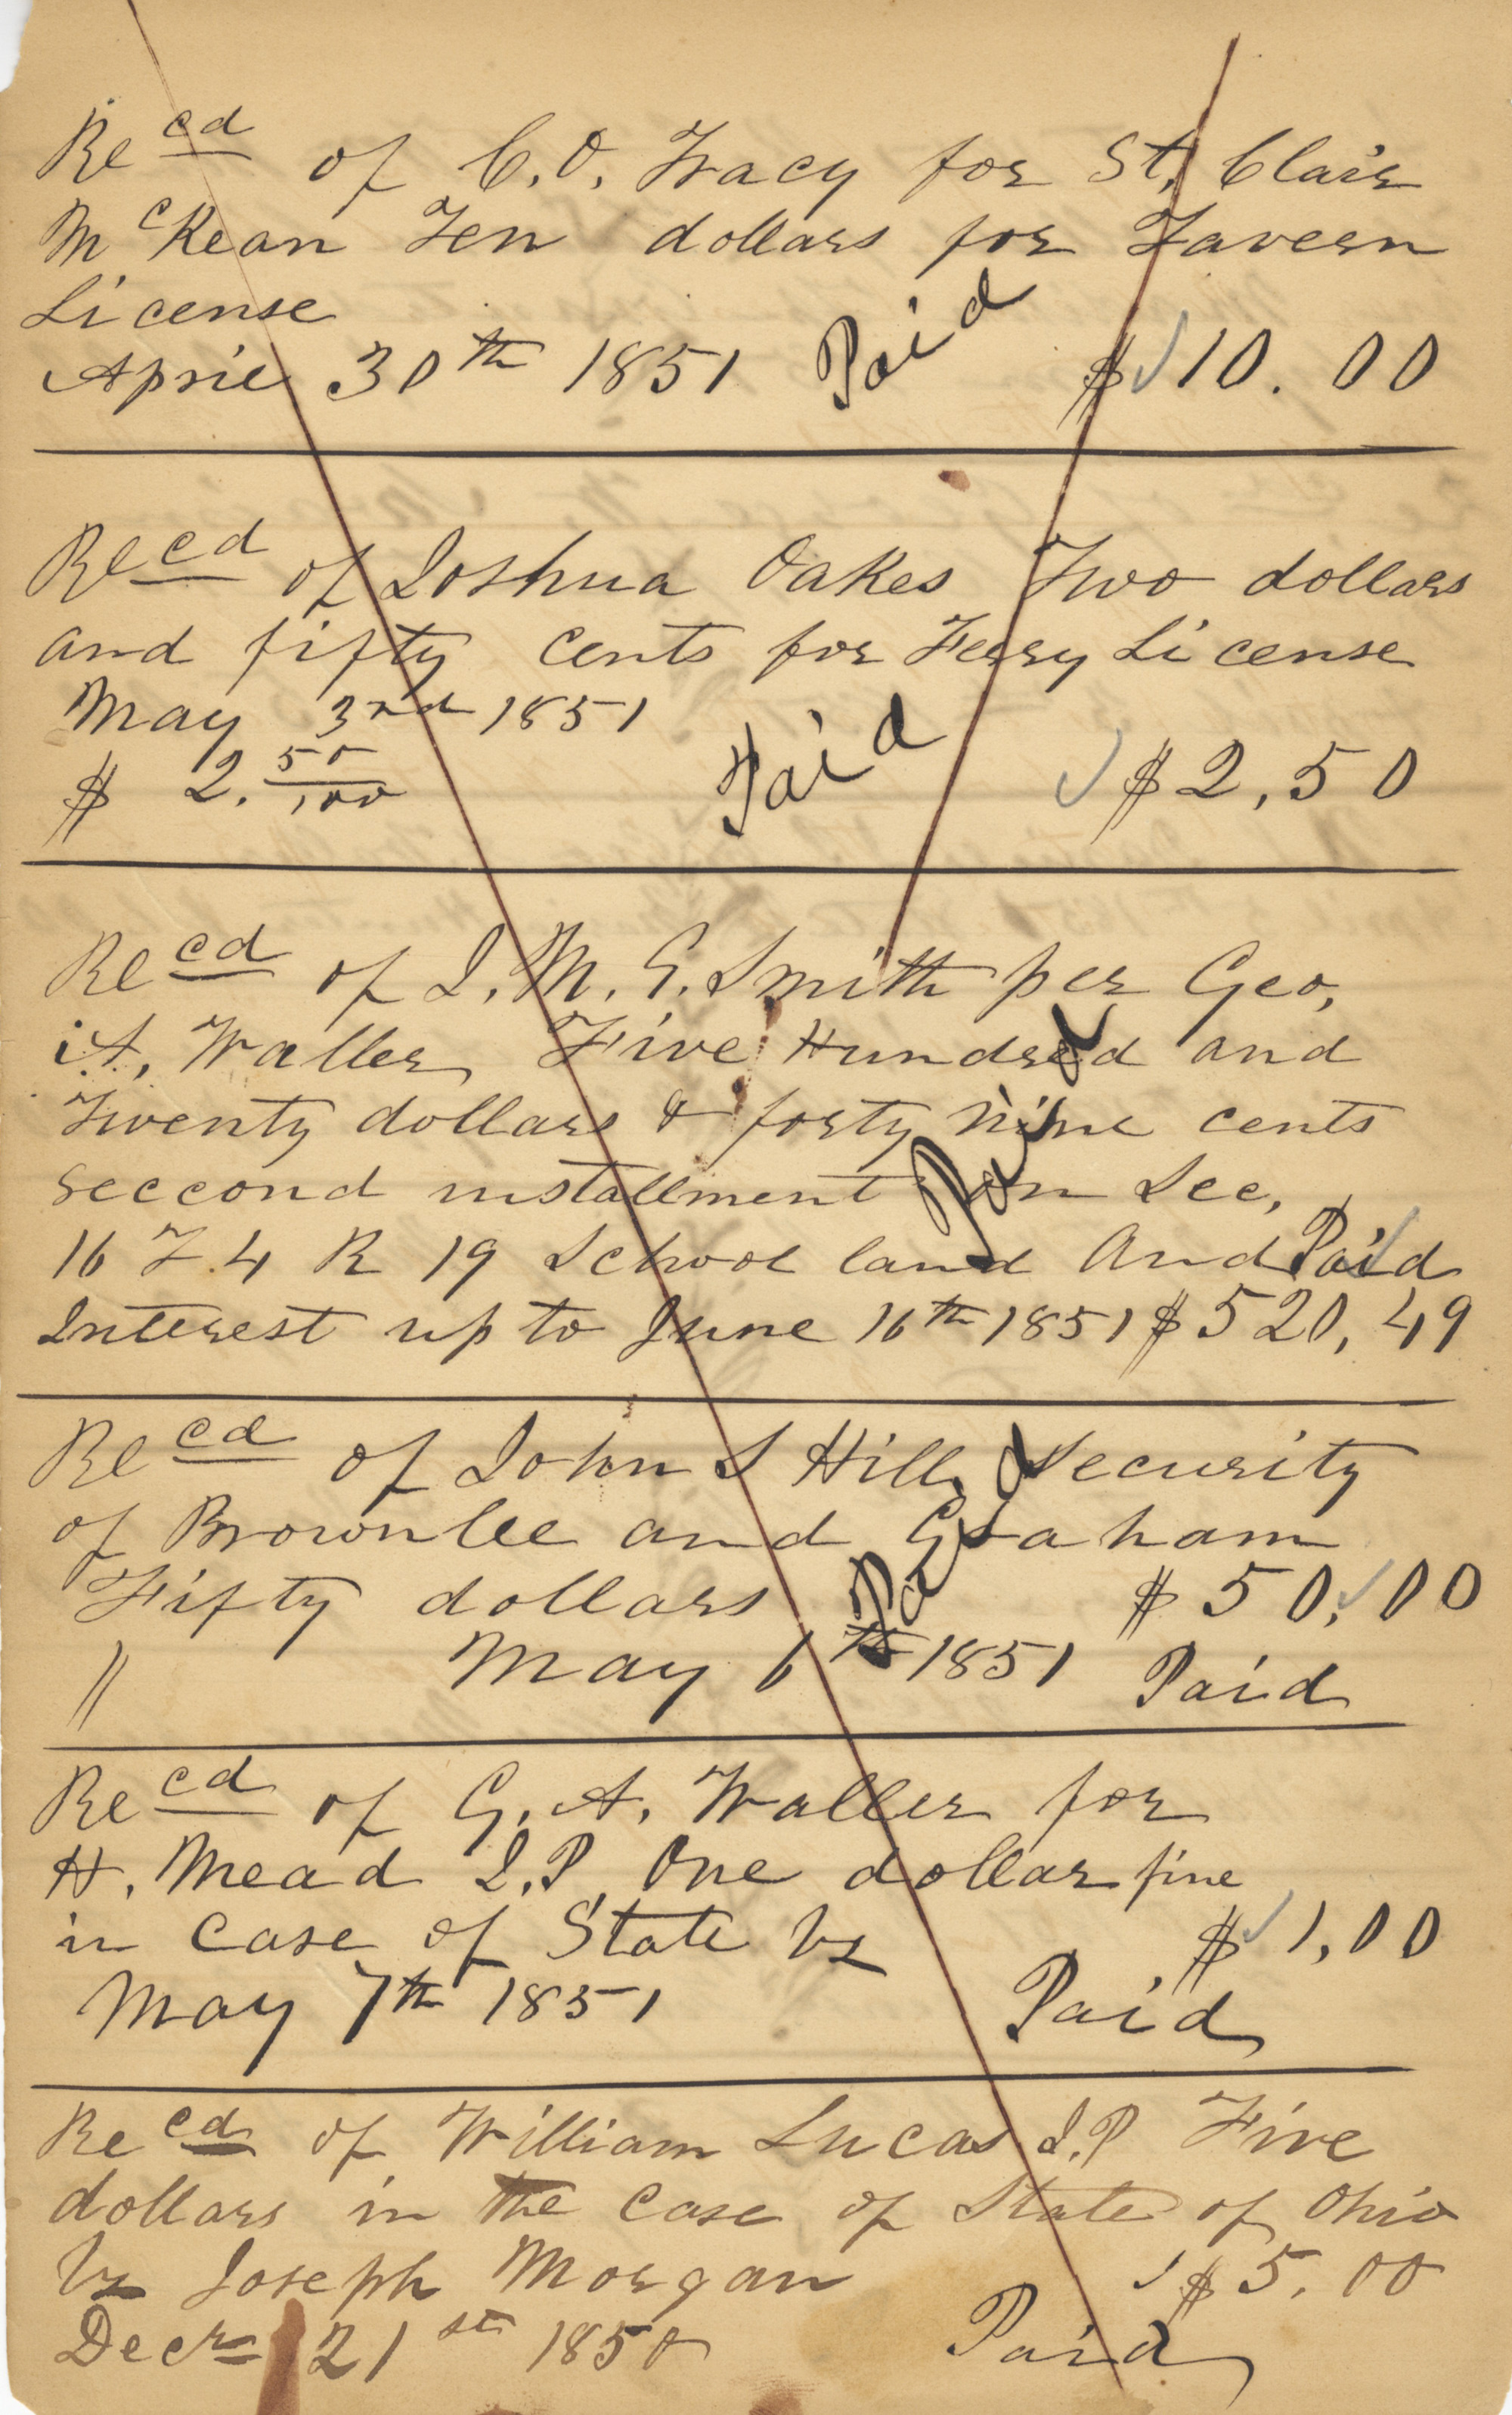 Recd of C. O. Tracy for St. Clair
McKean Ten dollars for Tavern
License
April 30th 1851 Paid $10.00
Recd of Joshua Oakes Two dollars
and fifty cents for Ferry License
May 3rd 1851
$ 2.50/100 Paid $2,50
Recd of J. M. G. Smith per Geo,
A, Waller, Five Hundred and
Twenty dollars & forty nine cents
seccond installment on Sec,
16 T 4 R 19 School land And Paid
Interest up to June 16th 1851 $520,49
Paid
Recd of John S Hill, Security
of Brownlee and Graham
Fifty dollars Paid $50,00
" May 6th 1851 Paid
Recd of G. A. Waller for
H. Mead J.P. One dollar fine
in case of State vs $1,00
May 7th 1851 Paid
Recd of William Lucas J.P Five
dollars in the case of State of Ohio
vs Joseph Morgan $5.00
Decr 21st 1850 Paid